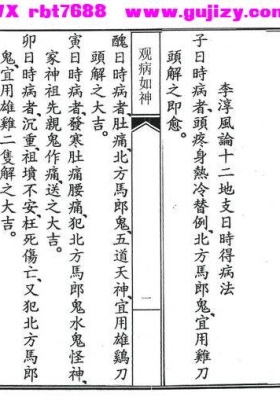 VX rbt7688 www.gujizy.com
李淳风論十二地支日時得病法
子日時病者、頭疼身熱冷替例、北方馬郎鬼、宜用雞刀
頭解之即愈。
观病如神
一
醜日時病者、肚痛、北方馬郎鬼、五道天神、宜用雄鷄刀
頭解之大吉。
寅日時病者、發寒肚痛腰痛、犯北方馬郎鬼水鬼怪神、
家神祖先親鬼作痛、送之大吉。
卯日時病者、沉重祖墳不安、枉死傷亡、又犯北方馬郎
鬼、宜用雄雞二隻解之大吉。